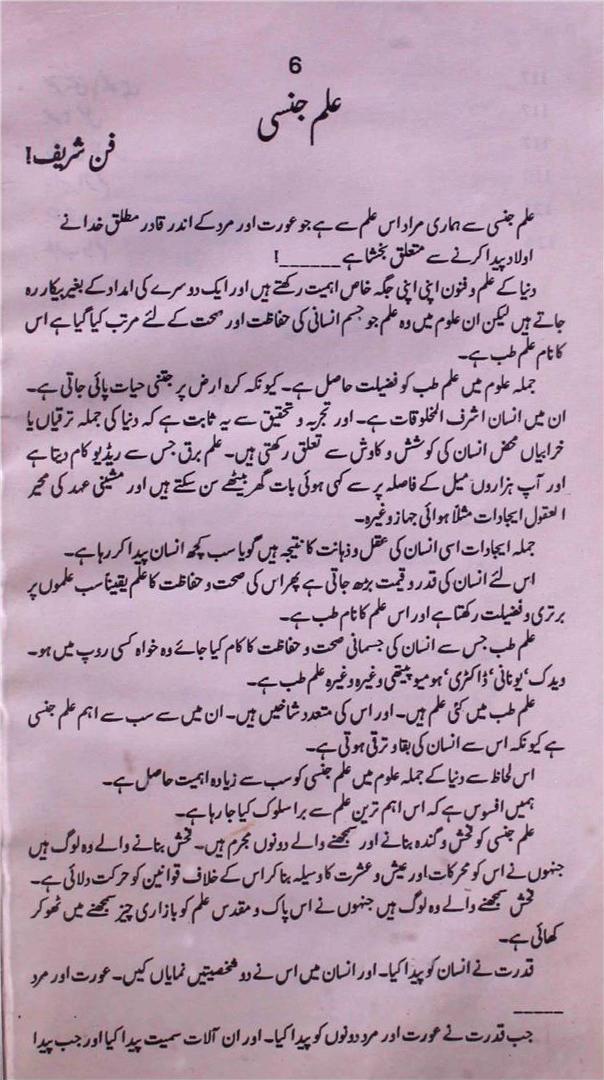 6
علم جنسی
فن شریف!
علم جنسی سے ہماری مراد اس علم سے ہے جو عورت اور مرد کے اندر قادر مطلق خدا نے
اولاد پیدا کرنے سے متعلق بخشا ہے______!
دنیا کے علم و فنون اپنی اپنی جگہ خاص اہمیت رکھتے ہیں اور ایک دوسرے کی امداد کے بغیر بیکار رہ
جاتے ہیں لیکن ان علوم میں وہ علم جو جسم انسانی کی حفاظت اور صحت کے لئے مرتب کیا گیا ہے اس
کا نام علم طب ہے۔
جملہ علوم میں علم طب کو فضیلت حاصل ہے۔ کیونکہ کرہ ارض پر جتنی حیات پائی جاتی ہے۔
ان میں انسان اشرف المخلوقات ہے۔ اور تجربہ و تحقیق سے یہ ثابت ہے کہ دنیا کی جملہ ترقیاں یا
خرابیاں محض انسان کی کوشش و کاوش سے تعلق رکھتی ہیں۔ علم برق جس سے ریڈیو کام دیتا ہے
اور آپ ہزاروں میل کے فاصلہ پر سے کہی ہوئی بات گھر بیٹھے سن سکتے ہیں اور مشینی عہد کی محیر
العقول ایجادات مثلاً ہوائی جہاز وغیرہ۔
جملہ ایجادات اسی انسان کی عقل و ذہانت کا نتیجہ ہیں گویا سب کچھ انسان پیدا کر رہا ہے۔
اس لئے انسان کی قدر و قیمت بڑھ جاتی ہے پھر اس کی صحت و حفاظت کا علم یقیناً سب علموں پر
برتری و فضیلت رکھتا ہے اور اس علم کا نام طب ہے۔
علم طب جس سے انسان کی جسمانی صحت و حفاظت کا کام کیا جائے وہ خواہ کسی روپ میں ہو۔
ویدک‘ یونانی‘ ڈاکٹری‘ ہومیو پیتھی وغیرہ وغیرہ علم طب ہے۔
علم طب میں کئی علم ہیں۔ اور اس کی متعدد شاخیں ہیں۔ ان میں سے سب سے اہم علم جنسی
ہے کیونکہ اس سے انسان کی بقا و ترقی ہوتی ہے۔
اس لحاظ سے دنیا کے جملہ علوم میں علم جنسی کو سب سے زیادہ اہمیت حاصل ہے۔
ہمیں افسوس ہے کہ اس اہم ترین علم سے برا سلوک کیا جا رہا ہے۔
علم جنسی کو فحش و گندہ بنانے اور سمجھنے والے دونوں مجرم ہیں۔ فحش بنانے والے وہ لوگ ہیں
جنہوں نے اس کو محرکات اور عیش و عشرت کا وسیلہ بنا کر اس کے خلاف قوانین کو حرکت دلائی ہے۔
فحش سمجھنے والے وہ لوگ ہیں جنہوں نے اس پاک و مقدس علم کو بازاری چیز سمجھنے میں ٹھوکر
کھائی ہے۔
قدرت نے انسان کو پیدا کیا۔ اور انسان میں اس نے دو شخصیتیں نمایاں کیں۔ عورت اور مرد
_____
جب قدرت نے عورت اور مرد دونوں کو پیدا کیا۔ اور ان آلات سمیت پیدا کیا اور جب پیدا